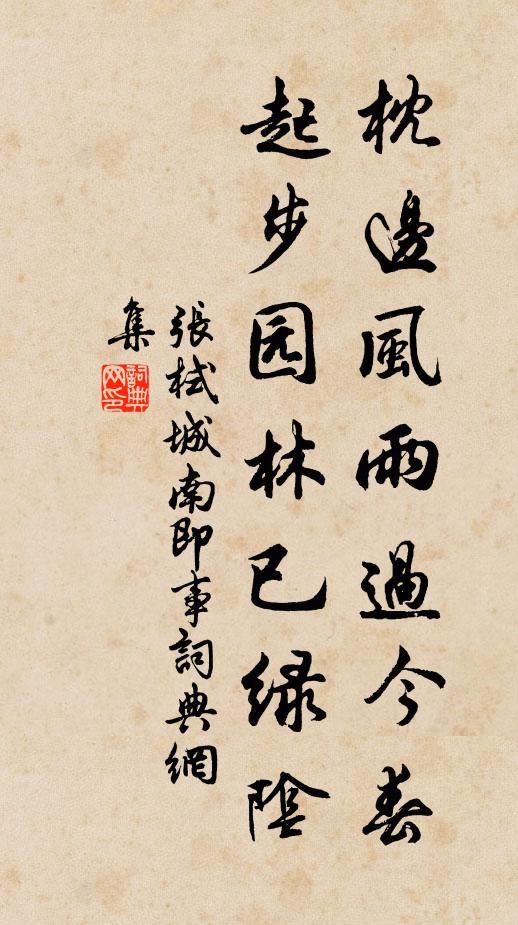 枕邊風雨過今春
起步园林已緑陰
張栻城南即事詞典網
集
詞典
网印